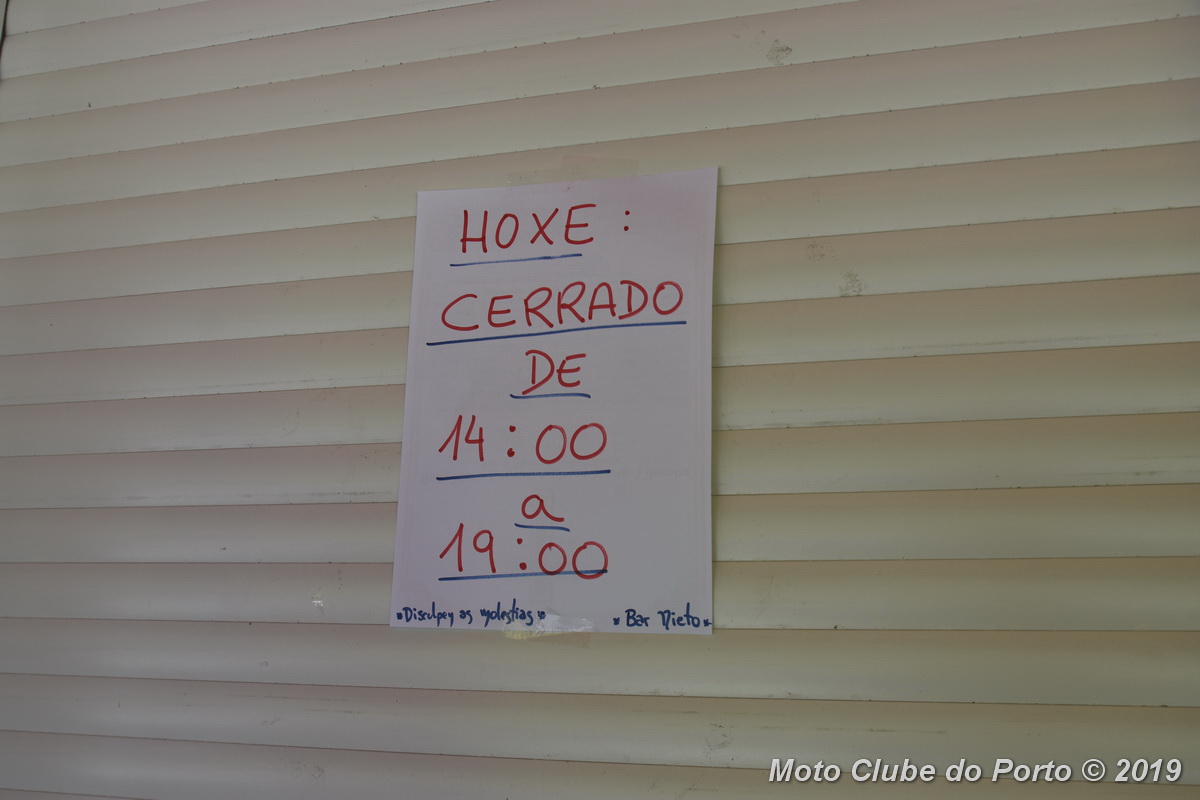 HOXE :
CERRADO
DE
14:00
a
19:00
*Disculpen as molestias* *Bar Nieto*
Moto Clube do Porto © 2019